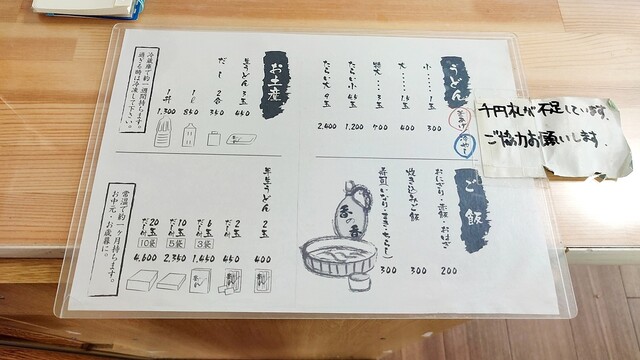 うどん
釜あげ
冷やし
小……1玉 300
大……1.5玉 400
特大……3玉 700
たらい小 4.5玉 1,200
たらい大 9玉 2,400
千円札が不足しています。
ご協力お願いします。
ご飯
おにぎり・赤飯・おはぎ 200
炊き込みご飯 300
300
お土産
生うどん 3玉 450
だし 2合 350
1ℓ 850
1升 1,300
冷蔵庫で約一週間持ちます。
過ぎる時は冷凍して下さい。
半生うどん 2玉 400
2玉 だし付 450
6玉 だし付 3袋 1,450
10玉 だし付 5袋 2,350
20玉 だし付 10袋 4,600
常温で約一ヶ月持ちます。
お中元・お歳暮に。